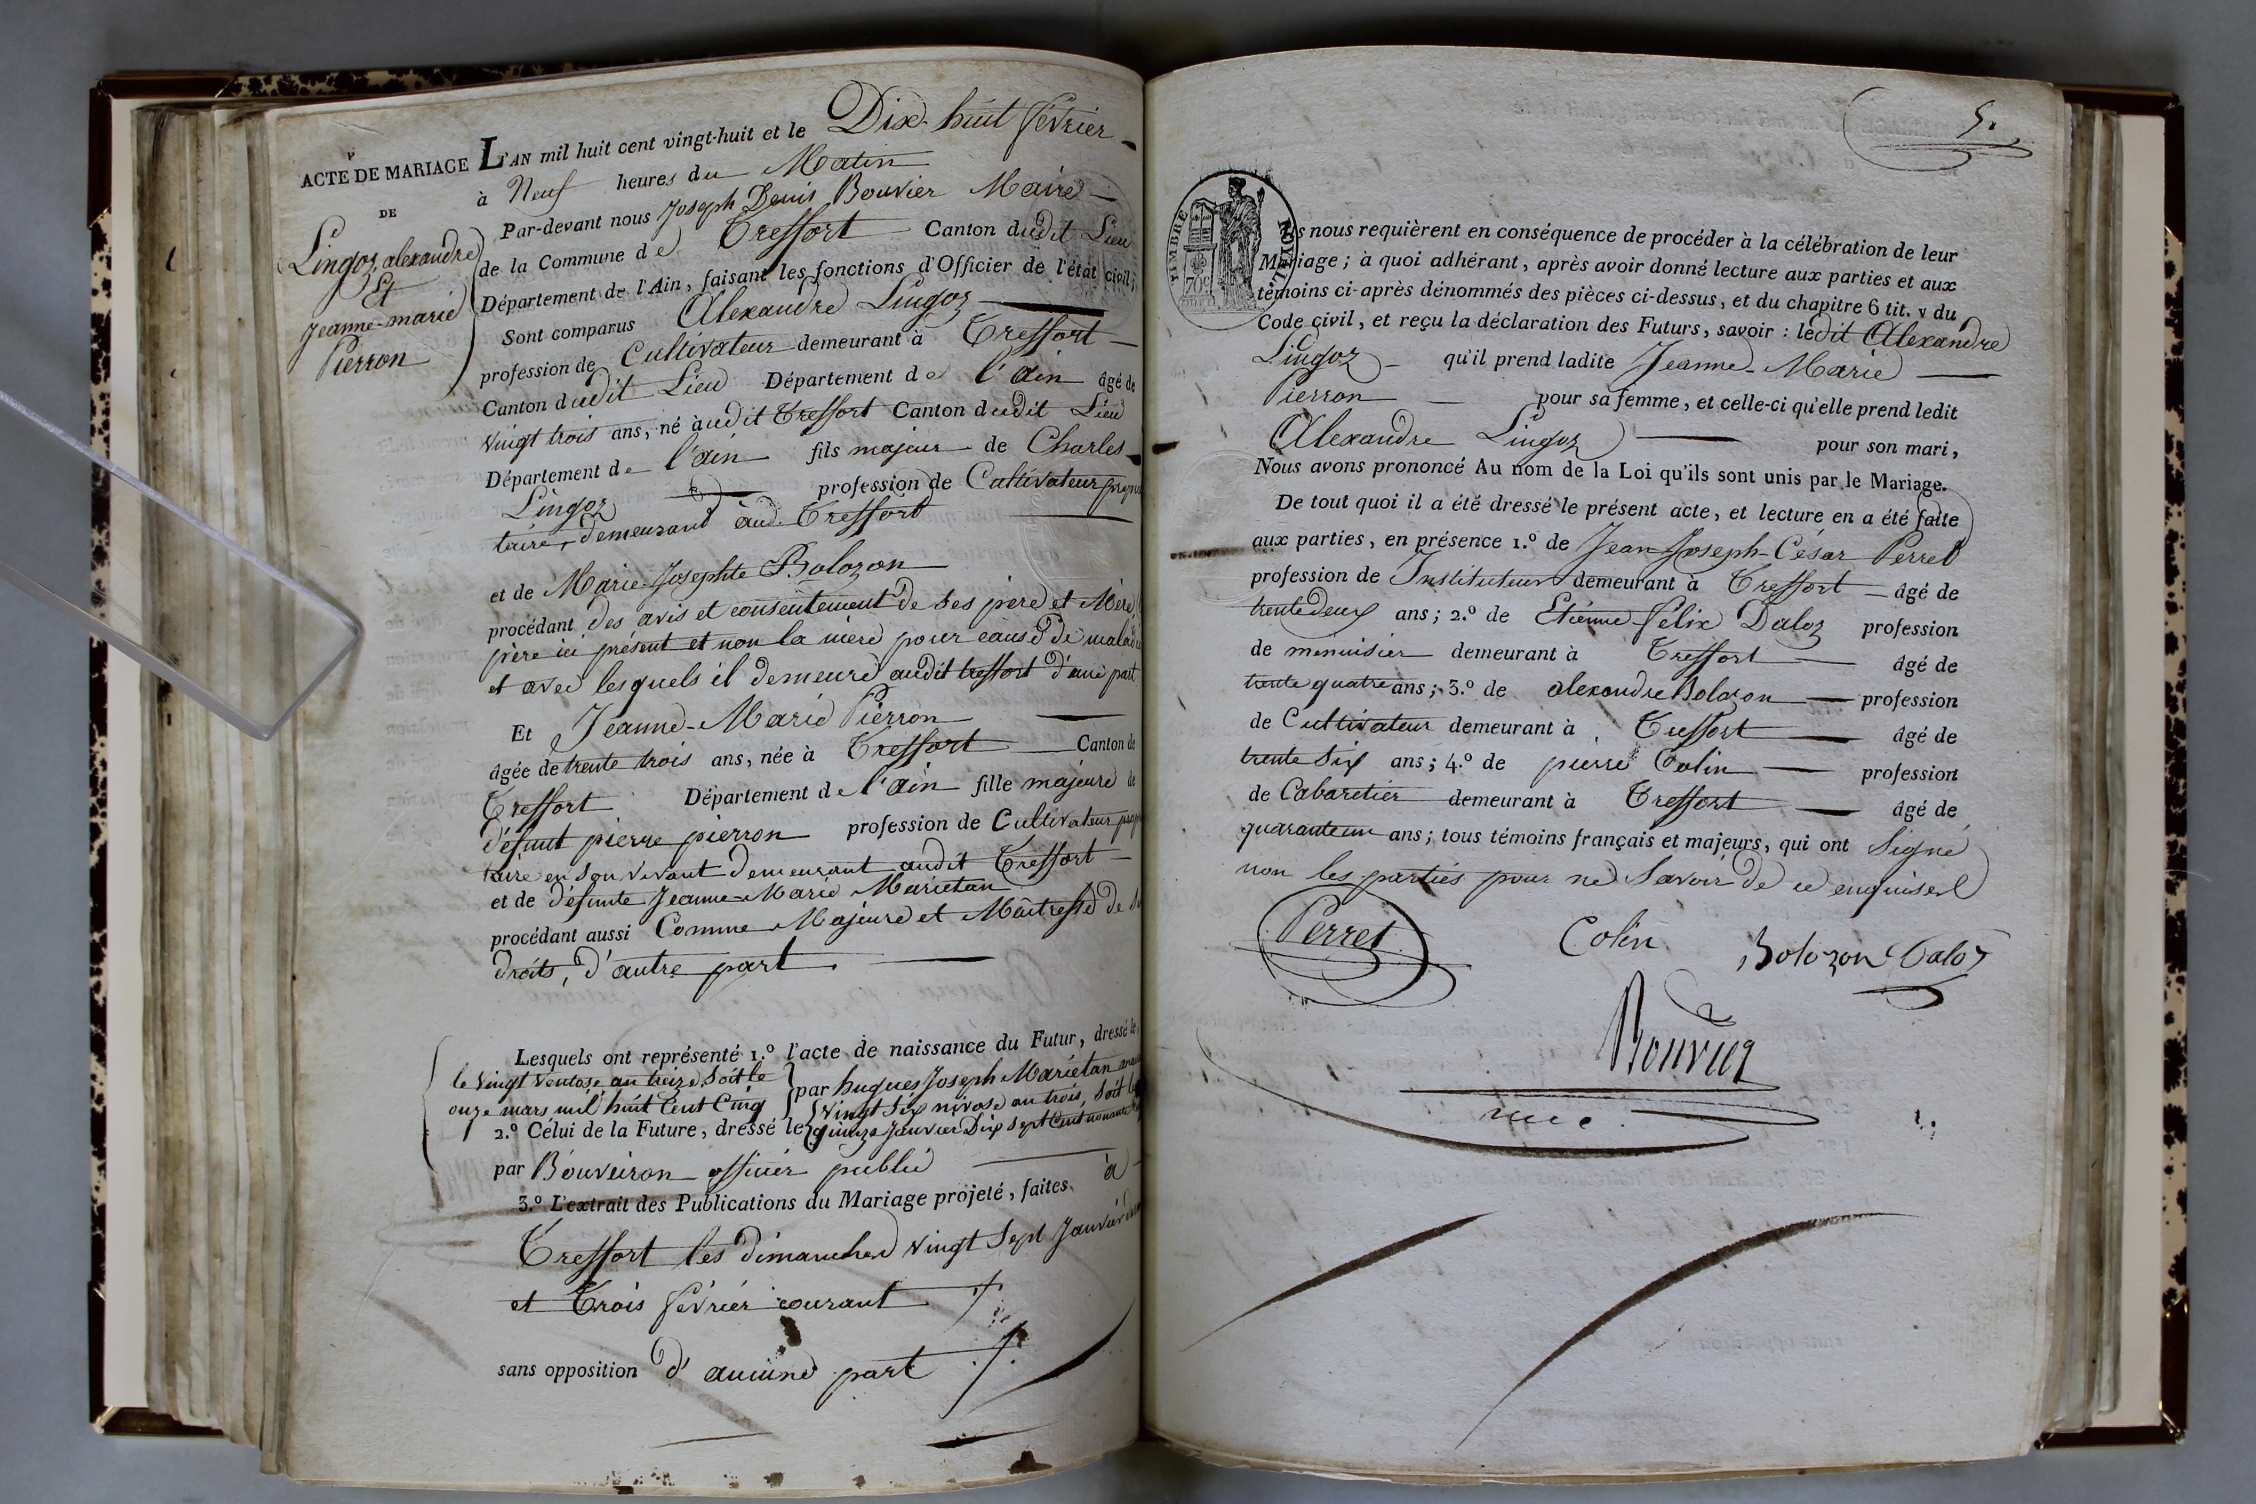 ACTE DE MARIAGE
DE
Lingoz, alexandre
Et
Jeanne-marie
Pierron
L'AN mil huit cent vingt-huit et le Dix-huit février
à Neuf heures du Matin
Par-devant nous Joseph Denis Bouvier Maire
de la Commune de Treffort Canton dudit Lieu
Département de l'Ain, faisant les fonctions d'Officier de l'état civil;
Sont comparus Alexandre Lingoz
profession de Cultivateur demeurant à Treffort
Canton dudit Lieu Département de l'ain âgé de
vingt trois ans, né àudit Treffort Canton dudit Lieu
Département de l'ain fils majeur de Charles
Lingoz profession de Cultivateur
taire, demeurant aud. Treffort
et de Marie-Josephte Bolozon
procédant des avis et consentement de ses père et Mère
père ici présent et non la mere pour cause de
et avec lesquels il demeure audit treffort d'une part
Et Jeanne-Marie Pierron
âgée de trente trois ans, née à Treffort Canton de
Treffort Département de l'ain fille majeure de
défunt pierre pierron profession de Cultivateur
taire en son vivant demeurant audit Treffort
et de défunte Jeanne-Marie Marietan
procédant aussi Comme Majeure et Maîtresse de
droits, d'autre part
Lesquels ont représenté 1.º l'acte de naissance du Futur, dressé le
le vingt ventose an treize, soit le
onze mars mil huit Cent Cinq
par hugues Joseph Mariétan
2.º Célui de la Future, dressé le vingt six nivose an trois, soit le
quinze Janvier Dix sept Cent nonante
par Bouveiron officier public à
3.º L'extrait des Publications du Mariage projeté, faites
Treffort les dimanches vingt sept Janvier
et Trois février courant
sans opposition d'aucune part
5.
TIMBRE ROYAL
70c
s nous requièrent en conséquence de procéder à la célébration de leur
Mariage; à quoi adhérant, après avoir donné lecture aux parties et aux
témoins ci-après dénommés des pièces ci-dessus, et du chapitre 6 tit. v du
Code civil, et reçu la déclaration des Futurs, savoir: ledit Alexandre
Lingoz qu'il prend ladite Jeanne-Marie
Pierron pour sa femme, et celle-ci qu'elle prend ledit
Alexandre Lingoz pour son mari,
Nous avons prononcé Au nom de la Loi qu'ils sont unis par le Mariage.
De tout quoi il a été dressé le présent acte, et lecture en a été faite
aux parties, en présence 1.º de Jean-Joseph-César Perret
profession de Instituteur demeurant à Treffort âgé de
trente deux ans; 2.º de Etienne félix Daloz profession
de menuisier demeurant à Treffort âgé de
trente quatre ans; 3.º de alexandre Bolozon profession
de Cultivateur demeurant à Treffort âgé de
trente Six ans; 4.º de pierre Colin profession
de Cabaretier demeurant à Treffort âgé de
quarante un ans; tous témoins français et majeurs, qui ont signé
non les parties pour ne Savoir de ce enquises
Perret
Colin
Bolozon Daloz
Bouvier